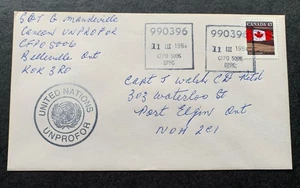 SGT G Mandeville
Cancon UNPROFOR
CFPO 5006
Belleville Ont
K0K 3R0
990396
11 III 1994
CFPO 5006
BFPC
990396
11 III 1994
CFPO 5006
BFPC
CANADA 43
Capt J Welsh CD Retd
303 Waterloo St
Port Elgin Ont
N0H 2C1
UNITED NATIONS
UNPROFOR